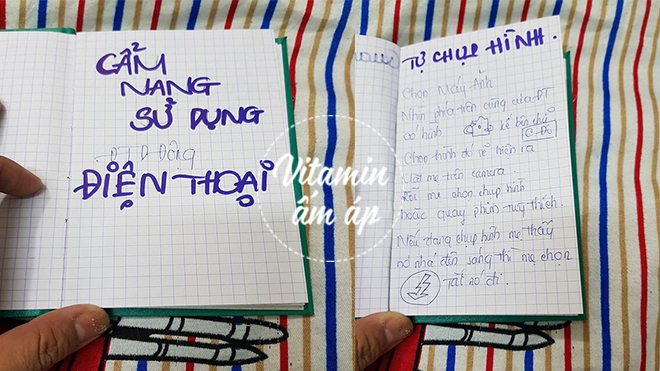 CẨM
NANG
SỬ DỤNG
ĐTD Động
ĐIỆN THOẠI
Vitamin
ấm áp
TỰ CHỤP HÌNH.
Chọn Máy Ảnh
Nhìn phía trên cùng của ĐT
có hình kế bên chữ
C.Độ
Chọn hình đó sẽ hiện ra
mặt mẹ trên camera.
Rồi mẹ chọn chụp hình
hoặc quay phim tuỳ thích.
Nếu đang chụp hình mẹ thấy
nó nhá đèn sáng thì mẹ chọn
Tắt nó đi.